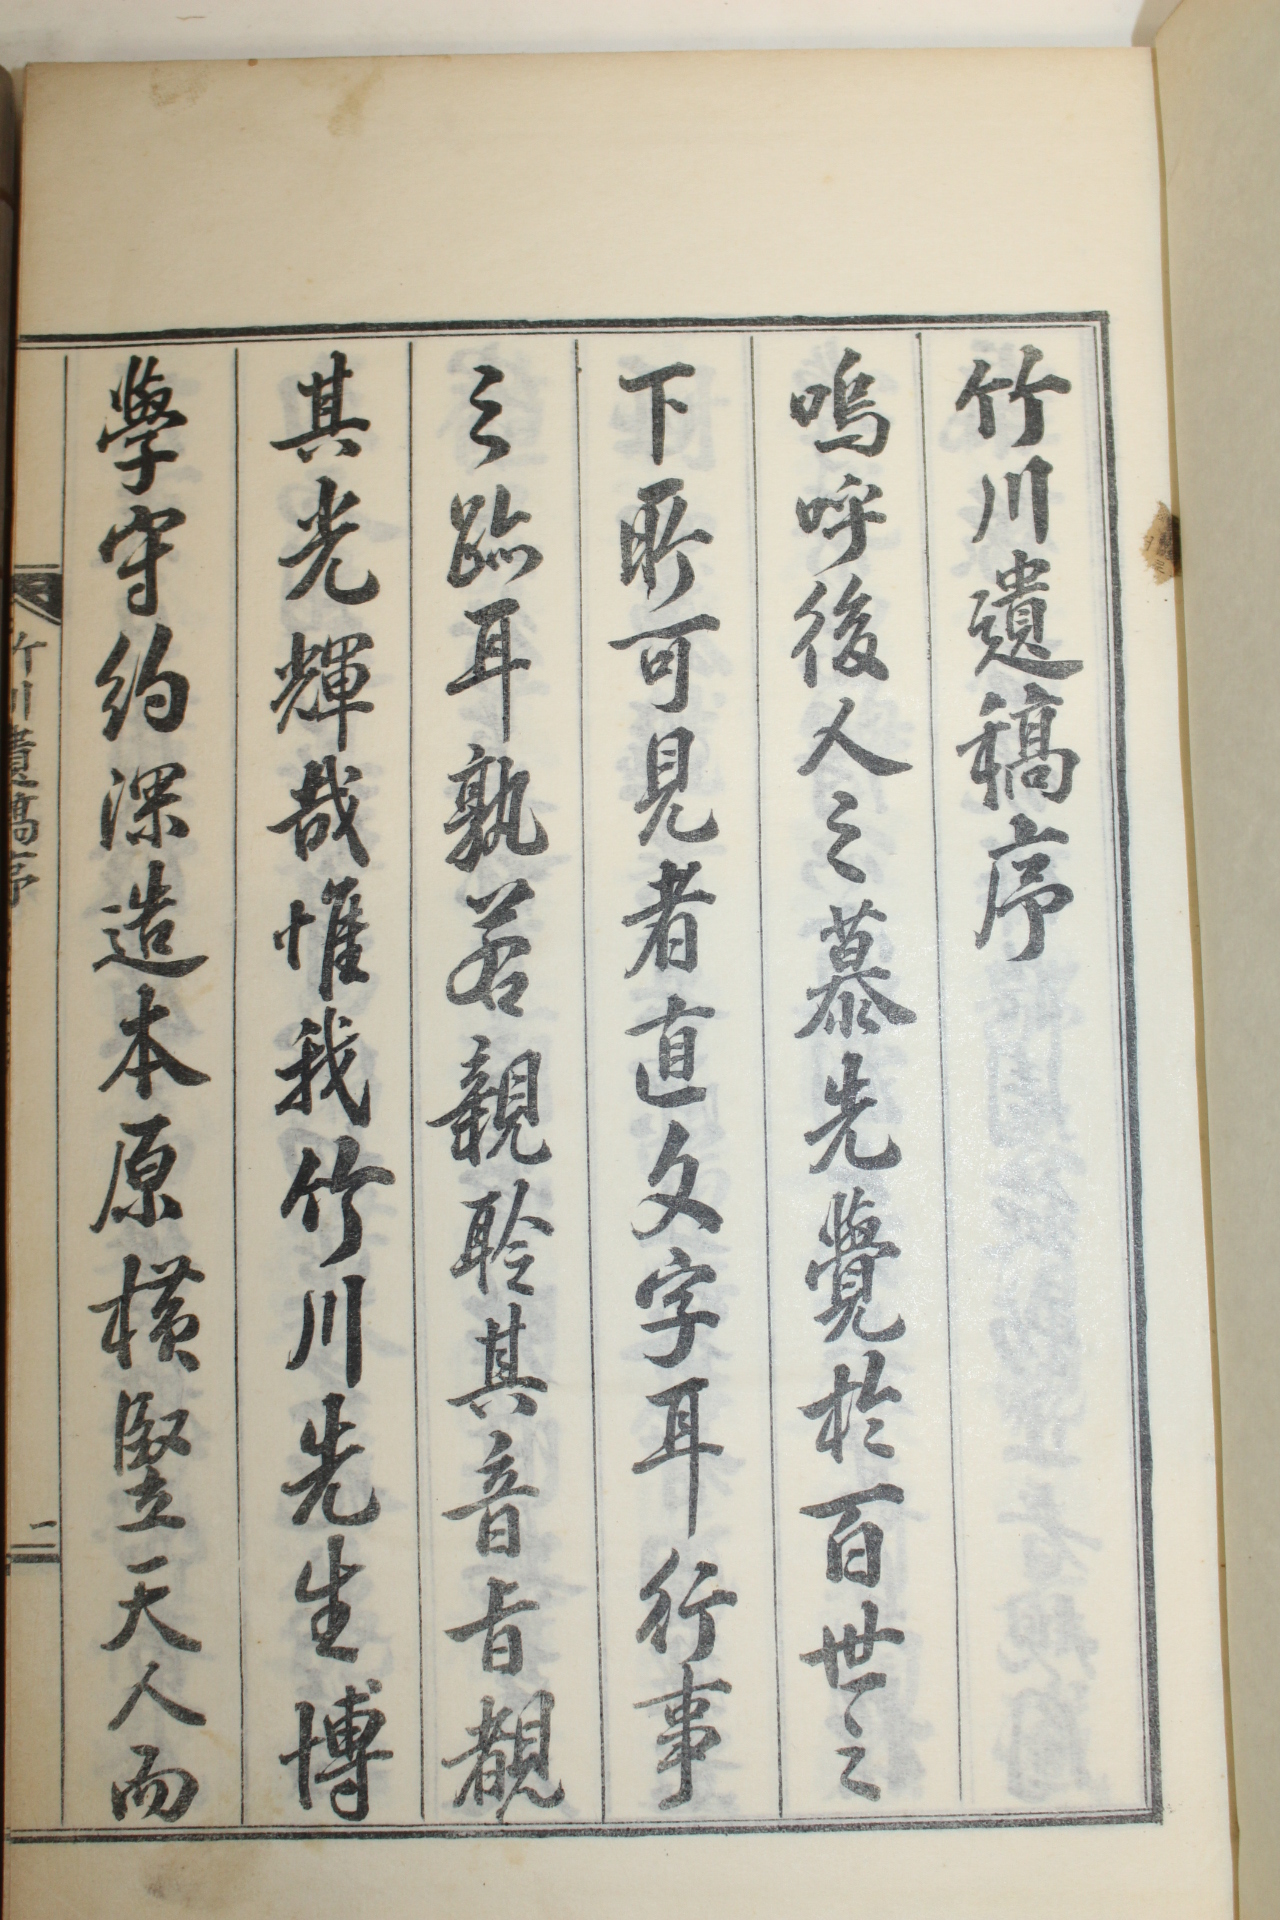 竹川遺稿序
嗚呼後人之慕先覺於百世之
下所可見者直文字耳行事
之跡耳孰若親聆其音旨覩
其光輝哉惟我竹川先生博
學守約深造本原橫竪天人而
竹川遺稿序
二